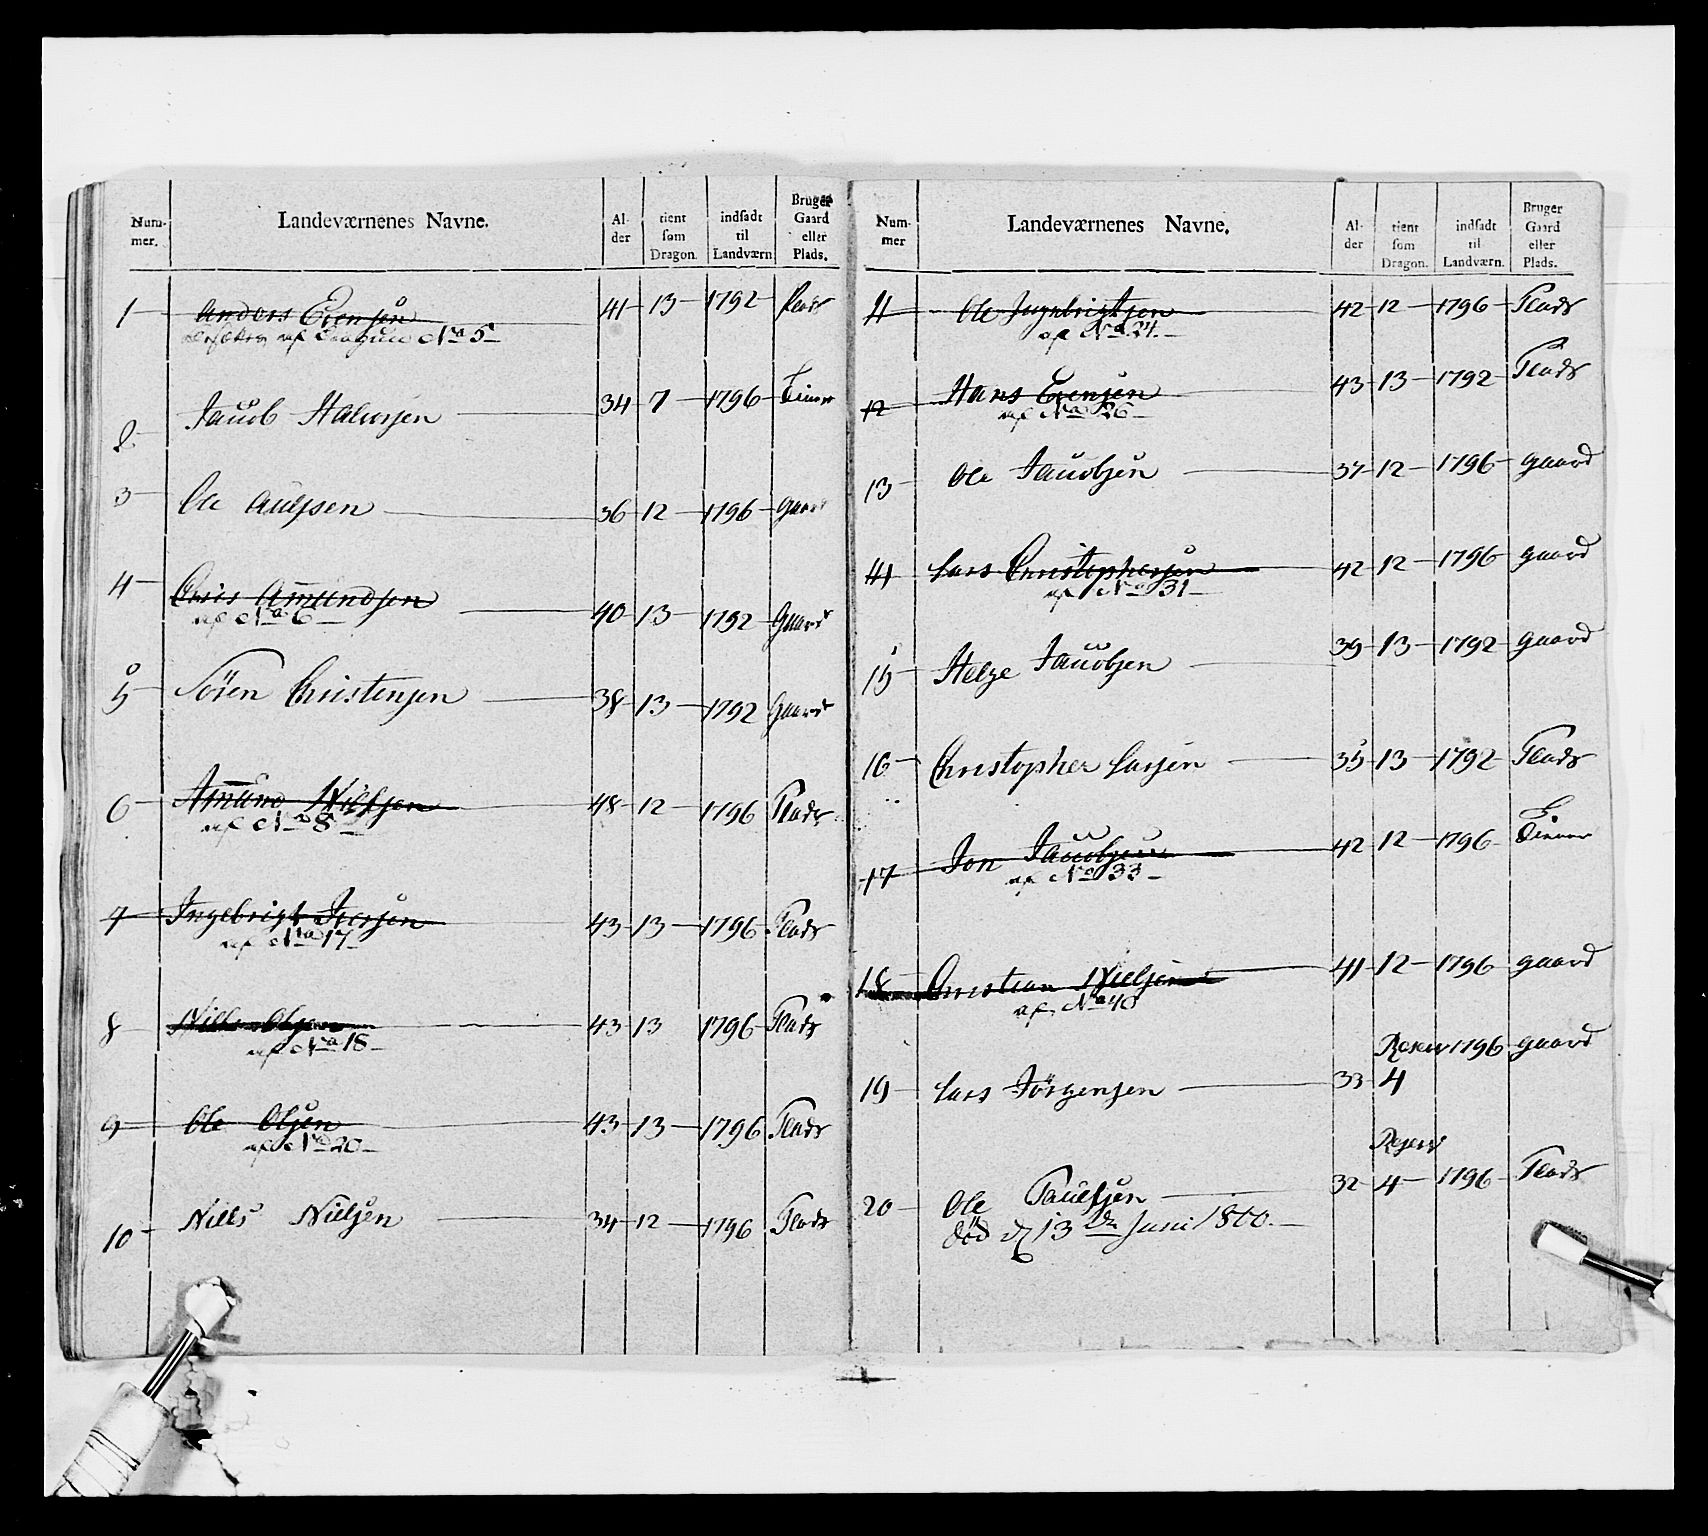 Num-mer. Landeværnenes Navne. Al-der tient som Dragon. indsadt til Landværn Bruger Gaard eller Plads.
1 Anders Evensøn 41 13 1792 Plads
af No 5
2 Jacob Halvorsen 34 7 1796
3 Ole 36 12 1796 gaard
4 Amundsen 40 13 1792 Gaard
af No 6
5 Sören Christensen 38 13 1792 Gaard
6 Amund Nilsen 48 12 1796 Plads
af No 8
7 Ingebrigt Iversen 43 13 1796 Plads
af No 17
8 Nills Olsen 43 13 1796 Plads
af No 18
9 Ole Olsen 43 13 1796 Plads
af No 20
10 Nills Nielsen 34 12 1796 Plads
Num-mer Landeværnenes Navne. Al-der tient som Dragon. indsadt til Landværn. Bruger Gaard eller Plads.
11 Ole Ingebrigtsen 42 12 1796 Plads
af No 24
12 Hans Evensen 43 13 1792 Plads
af No 26
13 Ole Jacobsen 37 12 1796 gaard
14 Lars Christophersen 42 12 1796 gaard
af No 31
15 Helge Jacobsen 39 13 1792 gaard
16 Christopher Larsen 35 13 1792 Plads
17 Jon Jacobsen 42 12 1796
af No 33
18 Christian Nielsen 41 12 1796 gaard
af No 40
Reserv 1796 gaard
19 Lars Jörgensen 33 4
Reserv
20 Ole Paulsen 32 4 1796 Plads
död d 13de Juni 1800.